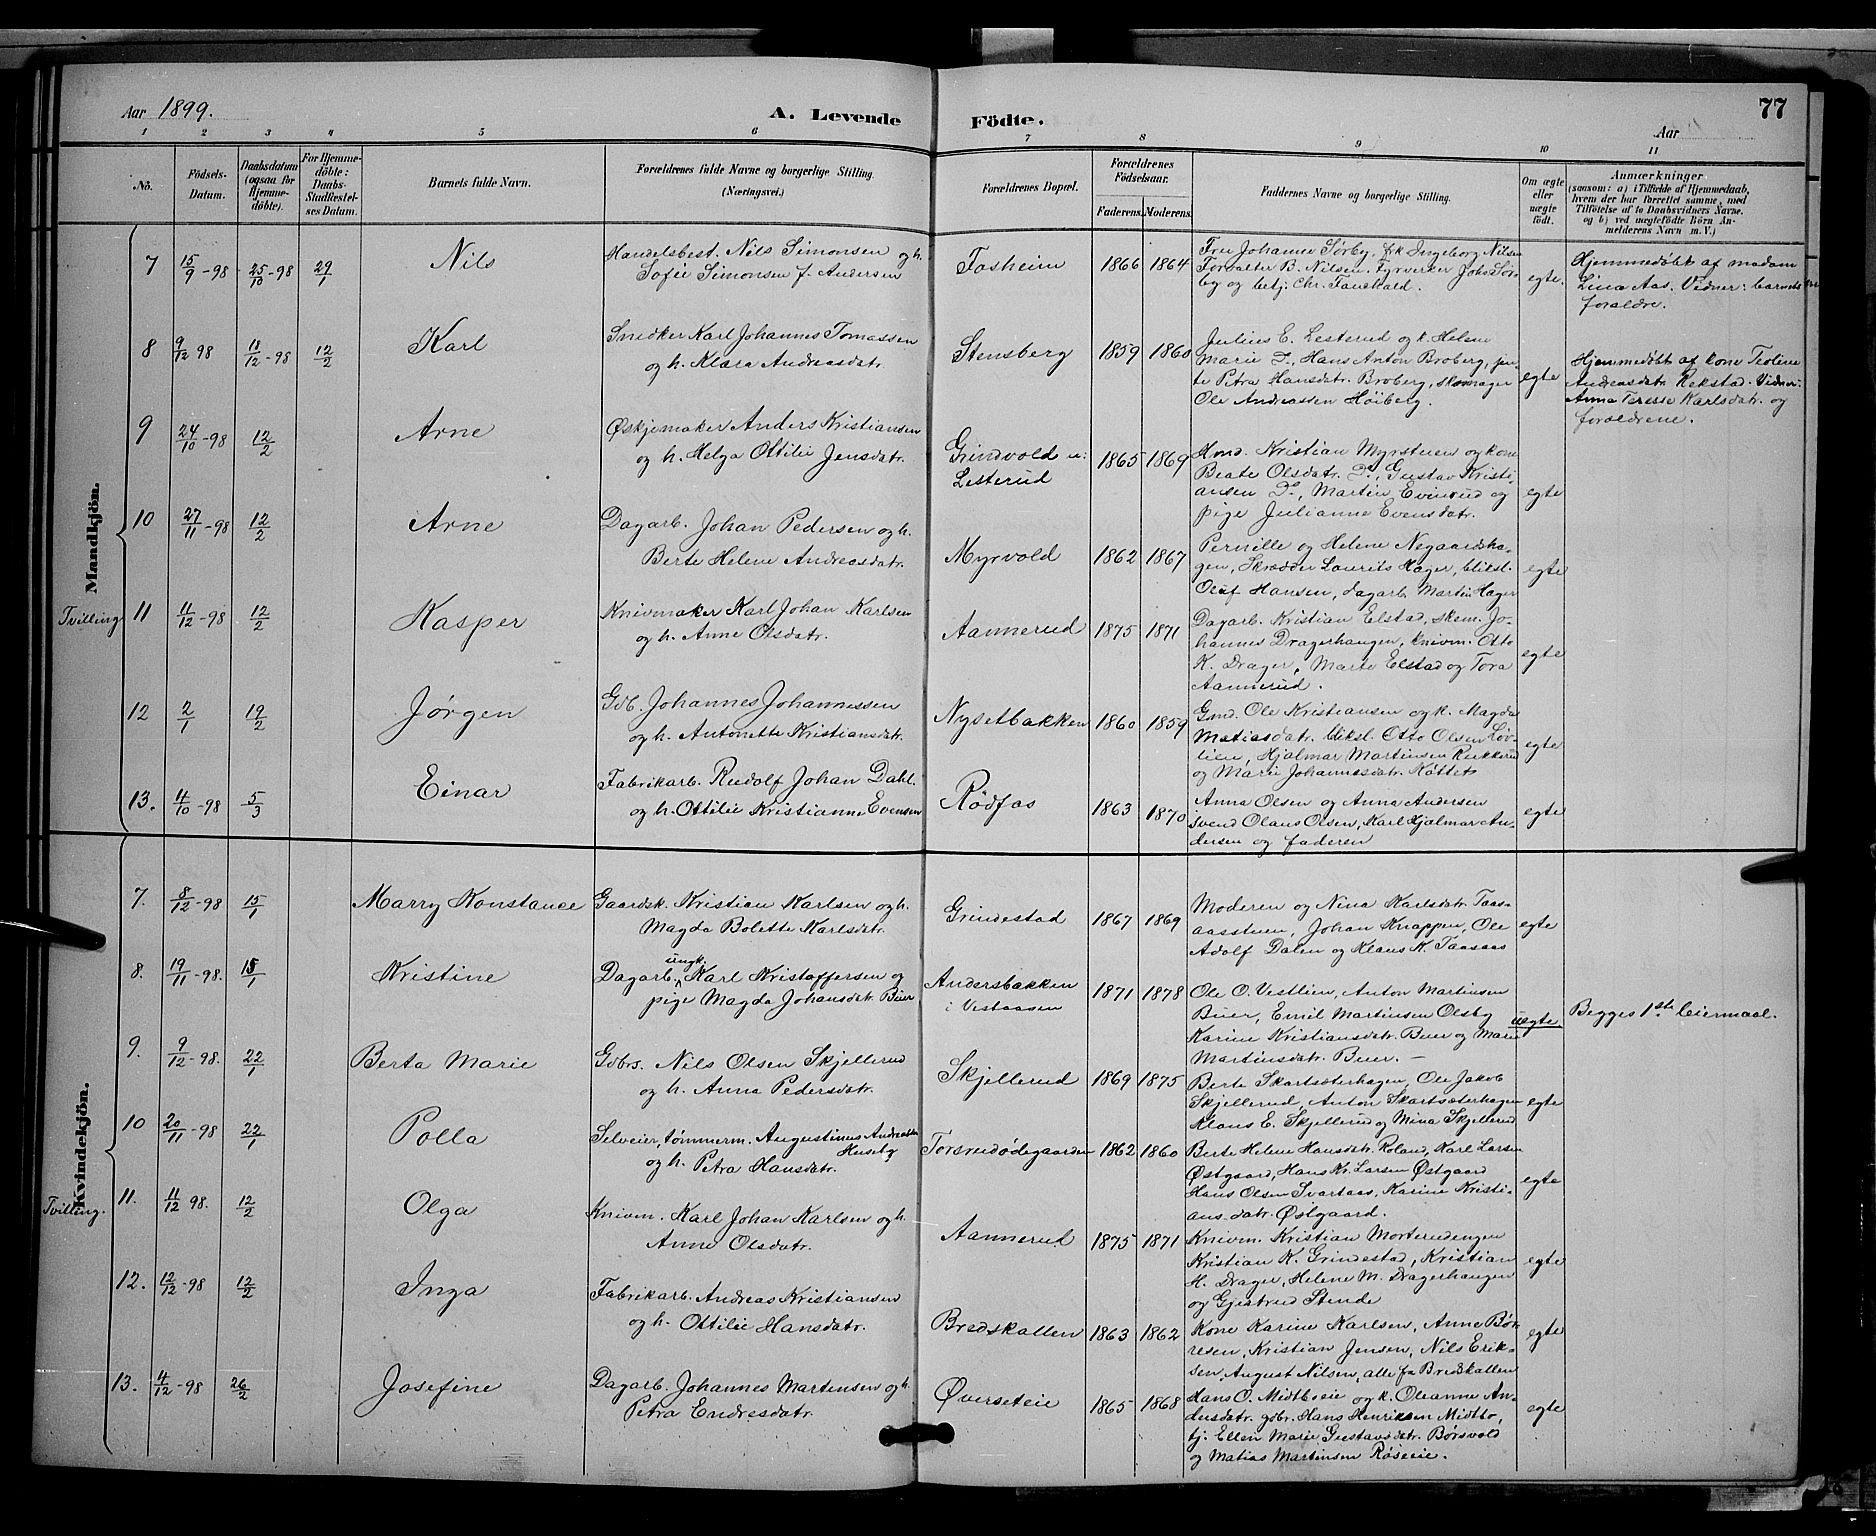 Aar 1899.
A. Levende Födte.
77
Aar
1 2 3 4 5 6 7 8 9 10 11
No.
Födsels-
Datum.
Daabsdatum
(ogsaa for
Hjemme-
döbte).
For Hjemme-
döbte:
Daabs-
Stadfæstel-
ses Datum.
Barnets fulde Navn.
Forældrenes fulde Navne og borgerlige Stilling
(Næringsvei.)
Forældrenes Bopæl.
Forældrenes
Födselsaar.
Faderens. Moderens.
Faddernes Navne og borgerlige Stilling.
Om ægte
eller
uægte
født.
Anmærkninger
(saasom: a) i Tilfælde af Hjemmedaab,
hvem der har forrettet samme, med
Tilföielse af to Daabsvidners Navne.
og b) ved uægtefödte Börn An-
melderens Navn m. V.)
Mandkjön.
7 15/9-98 25/10-98 29/1 Nils
Handelsbest. Nils Simonsen og h.
Sofie Simonsen f. Andersen
Tosheim 1866 1864
Fru Johanne Sørby, frk Ingeborg Nilsen
Forvalter B. Nilsen. Fyrverker Johs Sør-
by og betj. Chr. Fauchald.
egte.
Hjemmedøbt af madam
Lina Aas. Vidner: barnets
forældre.
8 9/12 98 18/12-98 12/2 Karl
Snedker Karl Johannes Tomassen
og h. Klara Andreasdatr.
Stensberg 1859 1860
Julius E. Lesterud og k. Helene
Marie D., Hans Anton Broberg, jen-
te Petra Hansdatr. Broberg, skomager
Ole Andreassen Høiberg.
egte
Hjemmedøbt af kone Teoline
Andreasdatr. Rekstad. Vidner:
Anna Terese Karlsdatr. og
forældrene.
9 24/10-98 12/2 Arne
Øskjemaker Anders Kristiansen
og h. Helga Ottilie Jensdatr.
Grindvold u:
Lesterud 1865 1869
Hmd. Kristian Myrstuen og kone
Beate Olsdatr. Do, Gustav Kristi-
ansen Do, Martin Evinrud og
pige Julianne Evensdatr.
egte
10 27/11-98 12/2 Arne
Dagarb. Johan Pedersen og h.
Berte Helene Andreasdatr.
Myrvold 1862 1867
Pernille og Helene Negaardsha-
gen, Skrædder Laurits Hager, bliksl.
Oluf Hansen, dagarb Martin Hager
egte
Tvilling 11 11/12-98 12/2 Kasper
Knivmaker Karl Johan Karlsen
og h. Anne Olsdatr.
Aannerud 1875 1871
Dagarb. Kristian Elstad, skom. Jo-
hannes Dragerhaugen, knivm. Otto
K. Drager, Marte Elstad og Tora
Aannerud.
egte
12 2/1 19/2 Jørgen
Gdb. Johannes Johannessen
og h. Antonette Kristiansdatr.
Nysetbakken 1860 1859
Gmd. Ole Kristiansen og k. Magda
Matiasdatr. bliksl. Otto Olsen Løv-
lien, Hjalmar Martinsen Rukkerud
og Marie Johannesdatr. Kottet
egte
13. 4/10-98 5/3 Einar
Fabrikarb. Rudolf Johan Dahl.
og h. Ottilie Kristianne Evensen
Rødfos 1863 1870
Anna Olsen og Anna Andersen
svend Olaus Olsen, Karl Hjalmar An-
dersen og faderen
egte
Kvindekjön.
7. 8/12-98 15/1 Marry Konstance
Gaardsk. Kristian Karlsen og h.
Magda Bolette Karlsdatr.
Grindestad 1867 1869
Moderen og Nina Karlsdatr. Taas-
aasstuen, Johan Knappen, Ole
Adolf Dalen og Klaus K. Taasaas
egte
8. 19/11-98. 15/1 Kristine
Dagarb. ungk. Karl Kristoffersen og
pige Magda Johansdatr. Beier
Andersbakken
i Vestaasen 1871 1878
Ole O. Vestlien, Anton Martinsen
Buer, Emil Martinsen Olsby
Karine Kristiansdatr. Buer og Marie
Martinsdatr. Buer. -
uegte
Begges 1ste leiermaal.
9. 9/12-98. 22/1 Berta Marie
Gdbrs. Nils Olsen Skjellerud
og h. Anna Pedersdatr.
Skjellerud 1869 1875
Berte Skartsæterhagen, Ole Jakob
Skjellerud, Anton Skartsæterhagen
Klaus E. Skjellerud og Mina Skjellerud
egte
10 20/11-98 22/1 Polla
Selveier, tømmerm. Augustinus Andreassen
Huseby
og h. Petra Hansdatr.
Torsrudødegaarden 1862 1860
Berte Helene Hansdatr. Roland, Karl Larsen
Østgaard, Hans Kr. Larsen Østgaard
Hans Olsen Svartaas, Karine Kristi-
ansdatr. Østgaard.
egte
Tvilling. 11. 11/12 98. 12/2 Olga
Knivm. Karl Johan Karlsen og h.
Anne Olsdatr.
Aannerud 1875 1871
Knivm. Kristian Morterudengen
Kristian K. Grindestad, Kristian
H. Drager, Helene M. Dragerhaugen
og Gjertrud Stende
egte
12. 12/12-98 12/2 Inga
Fabrikarb. Andreas Kristiansen
og h. Ottilie Hansdatr.
Bredskallen 1863 1862
Kone Karine Karlsen, Anne Bør-
resen, Kristian Jensen, Nils Erik-
sen, August Nilsen, alle fra Bredskallen
egte
13. 4/12-98 26/2 Josefine
Dagarb. Johannes Martinsen og h.
Petra Endresdatr.
Øverseteie 1865 1868
Hans O. Midtboeie og k. Oleanne An-
dersdatr. gdbr. Hans Henriksen Midtbo,
tj. Ellen Marie Gustavsdatr. Børsvold
og Matias Martinsen Røseie.
egte